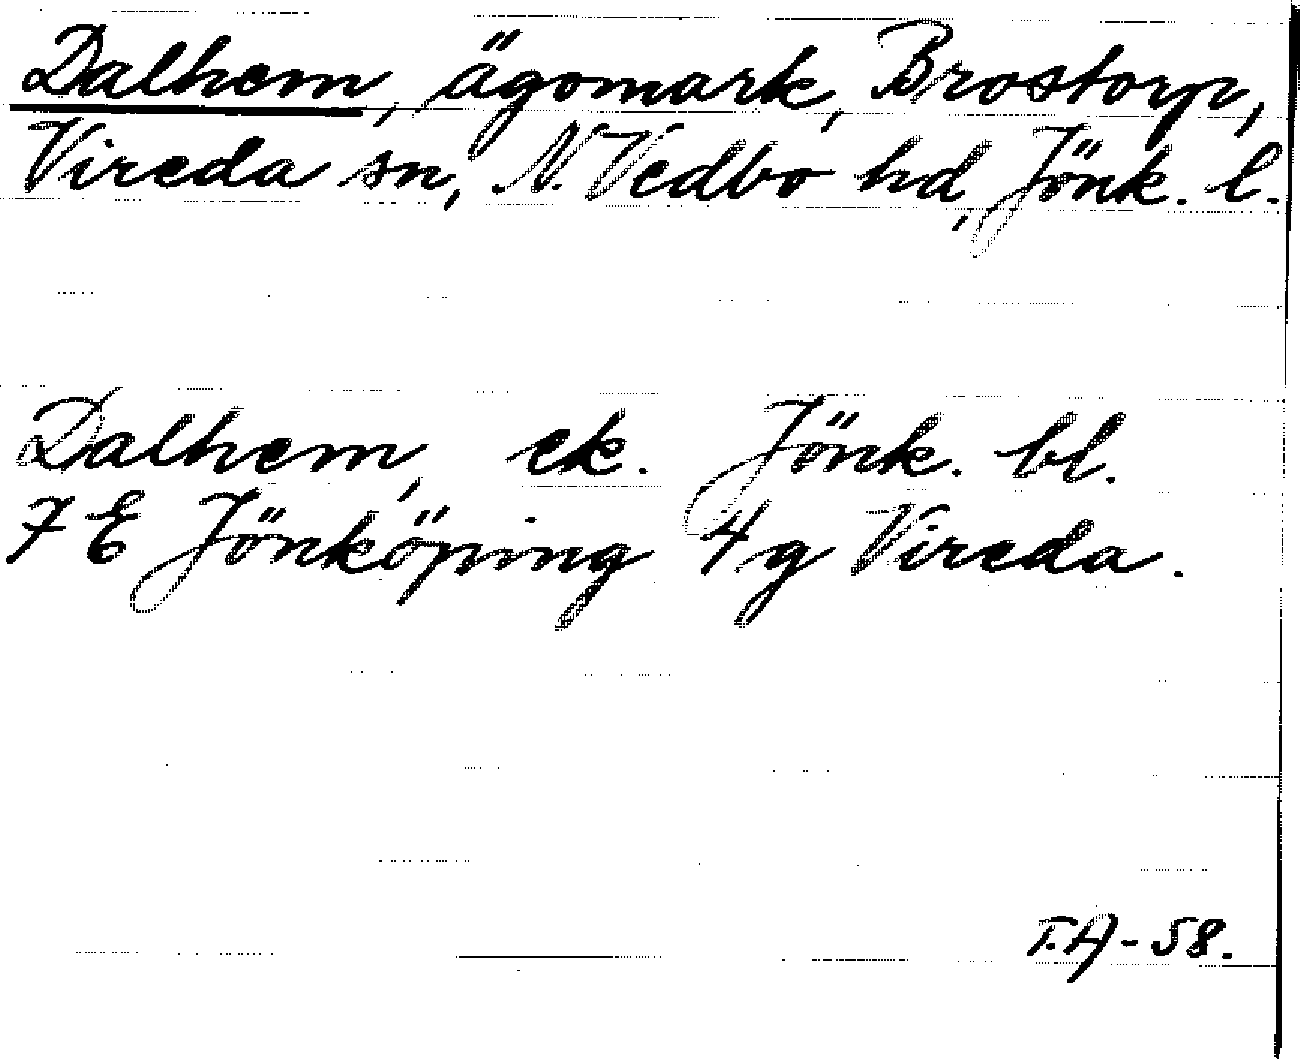 Dalhem, ägomark, Brostorp,
Vireda sn, N. Vedbo hd, Jönk. l.
Dalhem, ek. Jönk. bl.
7 E Jönköping 4 g Vireda.
T.A-58.